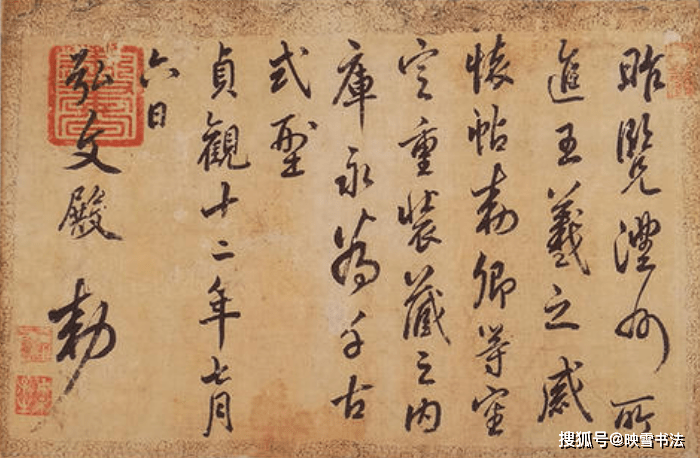 昨覽澧州所
進王羲之感
懷帖勅卿等審
定重裝藏之内
庫永爲千古
式型
貞觀十二年七月
六日
弘文殿勅
搜狐号@映雪书法